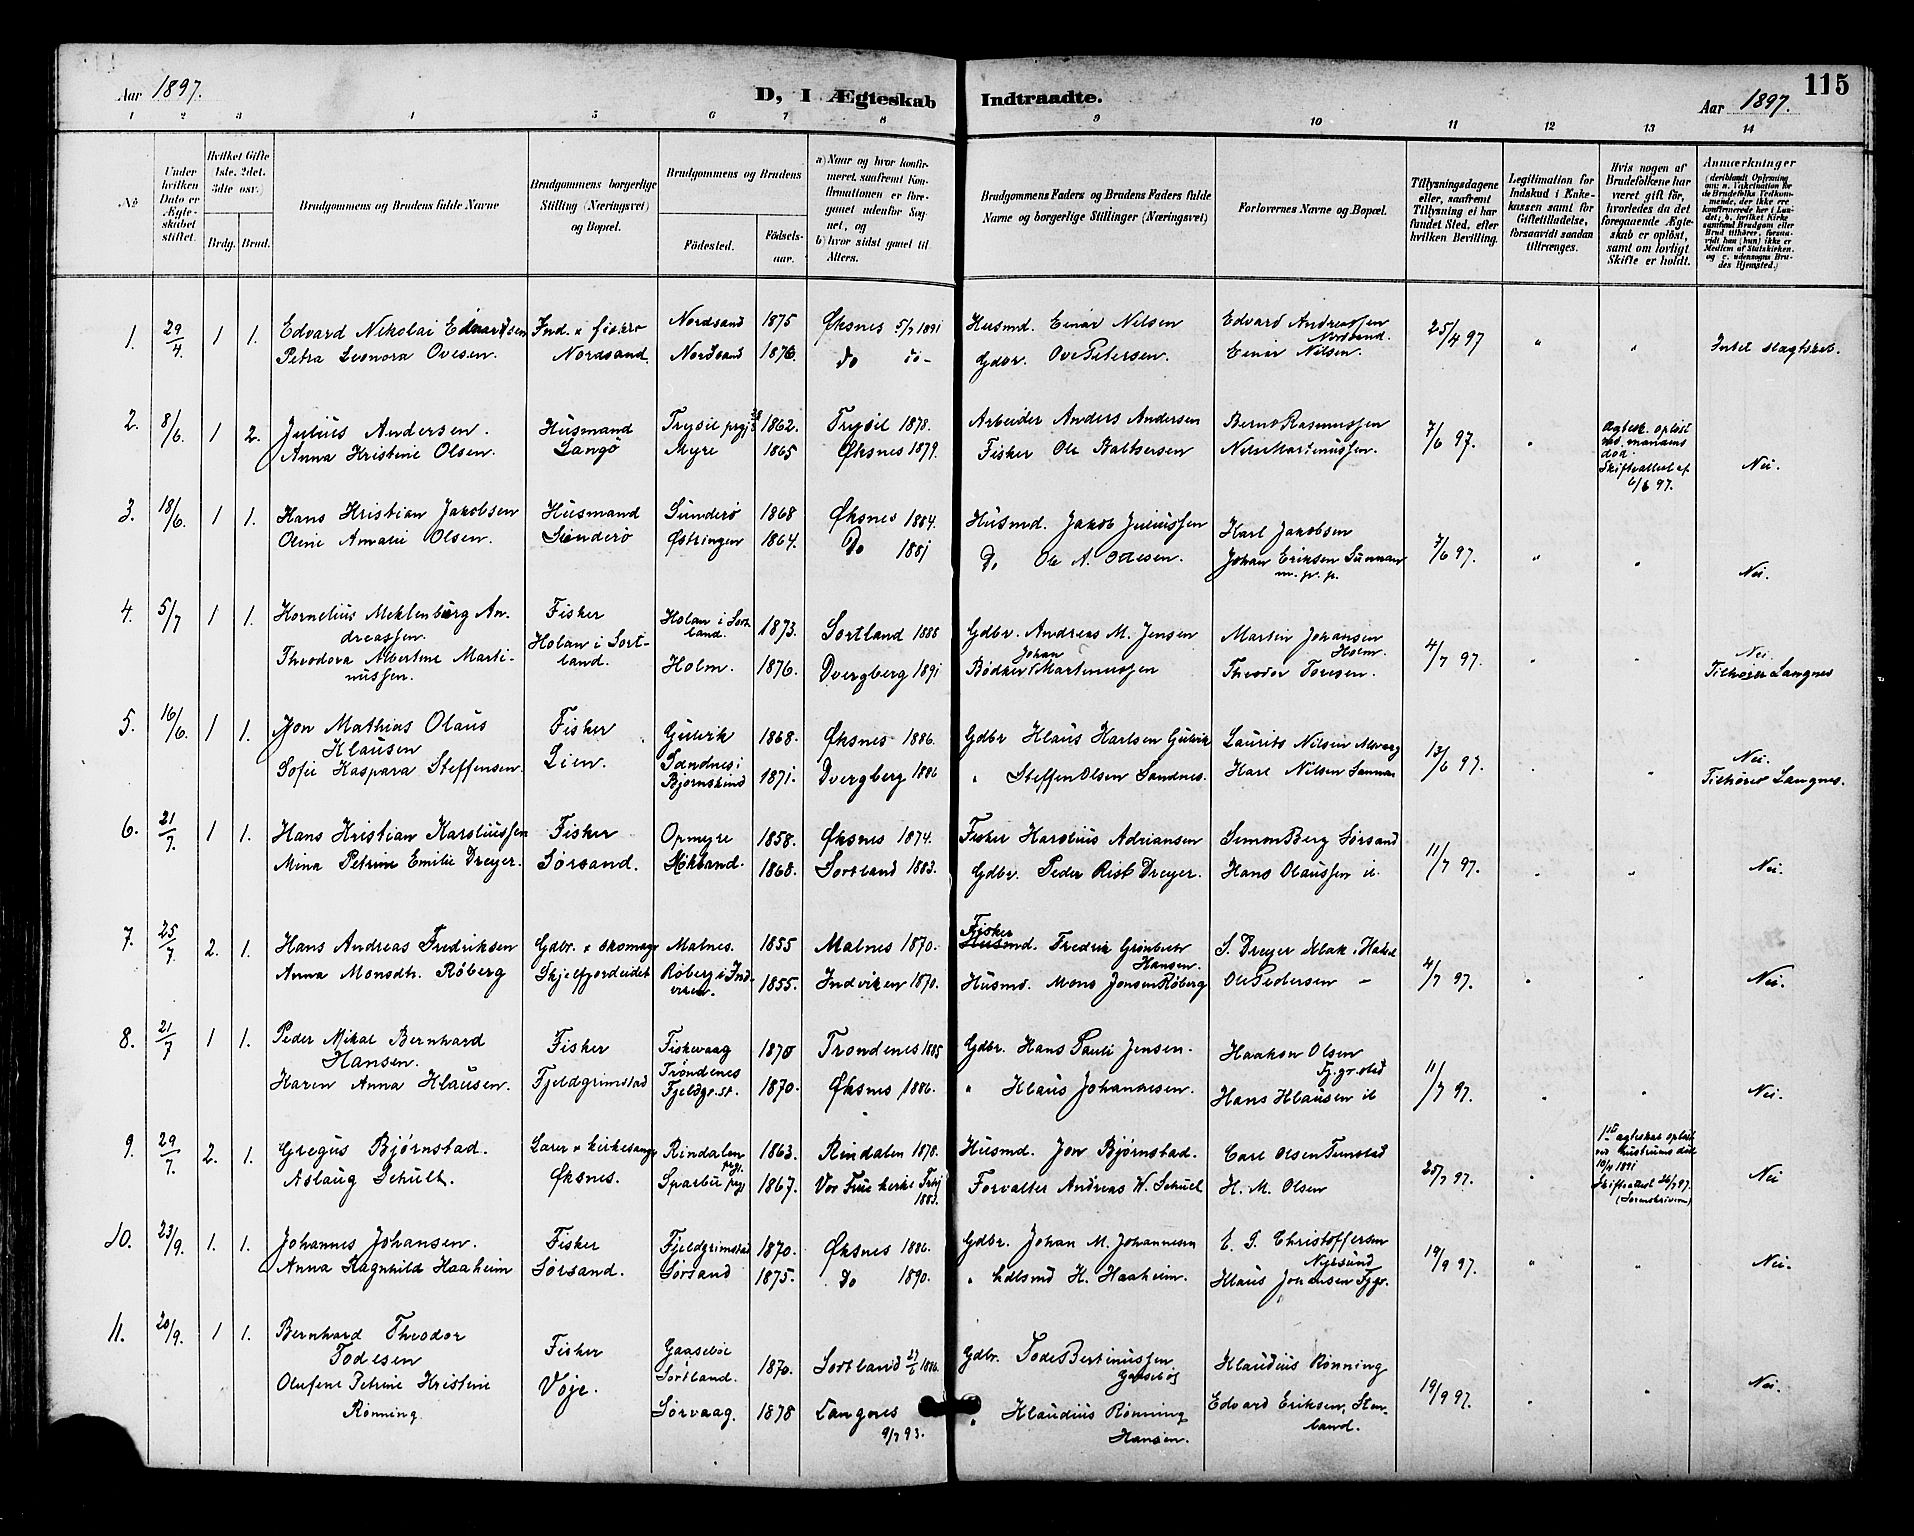 115
Aar 1897.
D, I Ægteskab Indtraadte.
Aar 1897.
1 2 3 4 5 6 7 8 9 10 11 12 13 14
No
Under hvilken Dato er Ægteskabet stiftet.
Hvilket Gifte 1ste. 2det. 3die osv.)
Brdg. Brud.
Brudgommens og Brudens fulde Navne
Brudgommens borgerlige Stilling (Næringsvei) og Bopæl.
Brudgommens og Brudens
Fødested. Fødselsaar.
a) Naar og hvor konfirmeret, saafremt Konfirmationen er foregaaet udenfor Sognet, og
b) hvor sidst gaaet til Alters.
Brudgommens Faders og Brudens Faders fulde Navne og borgerlige Stillinger (Næringsvei)
Forlovernes Navne og Bopæl.
Tillysningsdagene eller, saafremt Tillysning ei har fundet Sted, efter hvilken Bevilling.
Legitimation for Indskud i Enkekassen samt for Giftetilladelse, forsaavidt saadan tiltrænges.
Hvis nogen af Brudefolkene har været gift før, hvorledes da det foregaaende Ægteskab er opløst, samt om lovligt Skifte er holdt.
Anmærkninger (deriblandt Oplysning om: a. Vakcination for de Brudefolks Vedkommende, der ikke ere konfirmerede her i Landet; b. hvilket Kirkesamfund Brudgom eller Brud tilhører, forsaavidt han (hun) ikke er Medlem af Statskirken, og c. udensogns Brudes Hjemsted.)
1. 29/4. 1 1. Edvard Nikolai Edvardsen Ind. & fisker Nordsand 1875 Øksnes 5/7 1891 Husmd. Einar Nilsen Edvard Andreassen Nordsand. 25/4 97 " "
Petra Leonora Ovesen. Nordsand. Nordsand 1876. do do- Gdbr. Ove Petersen. Einar Nilsen. Intet slagtskab.
2. 8/6. 1 2. Julius Andersen. Husmand Trysil prgj 1862. Trysil 1878. Arbeider Anders Andersen Bernt Rasmussen 7/6 97. " Ægtesk. opløst ved mandens død.
Anna Kristine Olsen. Langø Myre 1865 Øksnes 1879. Fisker Ole Baltsersen Nils Martinussen. Skifteattest af 6/6 97. Nei.
3. 18/6. 1 1. Hans Kristian Jakobsen Husmand Sunderø 1868 Øksnes 1884. Husmd. Jakob Juliussen Karl Jakobsen 7/6 97. " "
Oline Amalie Olsen. Sunderø Østringen 1864. Do 1881 Do Ole A. Olesen. Johan Eriksen Sunnan m. p. p. Nei.
4. 5/7 1 1. Kornelius Meklenburg Andreassen. Fisker Holan i Sortland. 1873. Sortland 1888 Gdbr. Andreas M. Jensen Martin Johansen Holm. 4/7 97. " " Nei.
Theodora Albertine Martinussen. Holan i Sortland. Holm. 1876. Dvergberg 1891 Bødker Johan Martinussen Theodor Toresen. Tilhører Langnes
5. 16/6. 1 1. Jon Mathias Olaus Klausen Fisker Gulvik 1868. Øksnes 1886. Gdbr Klaus Karlsen Gulvik Laurits Nilsen 13/6 97. " " Nei.
Sofie Kaspara Steffensen. Lien. Sandnes i Bjørnskind 1871. Dvergberg 1886 " Steffen Olsen Sandnes. Karl Nilsen Tilhører Langnes.
6. 21/7. 1 1. Hans Kristian Karoliussen Fisker Opmyre 1858. Øksnes 1874. Fisker Karolius Adriansen Simon Berg Sørsand 11/7 97. " "
Mina Petrine Emilie Dreyer. Sørsand. Stokland. 1868. Sortland 1883. Gdbr. Peder Rist Dreyer. Hans Olaussen il. Nei.
7. 25/7. 2. 1. Hans Andreas Fredriksen Gdbr. & skomager Malnes. 1855 Malnes 1870. Fisker Husmd. Fredrik Grønbeck Hansen. S. Dreyer 4/7 97. " "
Anna Monsdtr. Røberg Skjelfjordeidet Røberg i Indviken. 1855. Indviken 1870. Husmd. Mons Jonsen Røberg Ole Pedersen - Nei.
8. 21/7 1 1. Peder Mikal Bernhard Hansen. Fisker Fiskevaag Trondenes 1870 Trondenes 1885 Gdbr. Hans Pauli Jensen. Haakon Olsen Fj.gr.stad 11/7 97. " "
Karen Anna Klausen. Fjeldgrimstad Fjeldgr.st. 1870. Øksnes 1886. " Klaus Johannesen. Hans Klausen il Nei.
9. 29/7. 2. 1. Gregus Bjørnstad. Lærer & kirkesanger Rindalen prgj. 1863. Rindalen 1878. Husmd. Jon Bjørnstad. Carl Olsen Tunstad 25/7 97. " 1ste ægteskab opløst ved hustruens død 1891
Aslaug Schult. Øksnes. Sparbu prgj 1867. Vor Frue kirke 1883. Forvalter Andreas W. Schult H. M. Olsen Skifteattest 26/7 97. (Sorenskriveren) Nei
10. 23/9. 1. 1. Johannes Johansen. Fisker Fjeldgrimstad 1870. Øksnes 1886. Gdbr. Johan M. Johannesen Christoffersen Nyksund 19/9 97. " "
Anna Ragnhild Haaheim Sørsand. Sørsand 1875. Do 1890. " H. Haaheim. Klaus Johansen Fjgr. Nei.
11. 20/9. 1 1. Bernhard Theodor Todesen Fisker Gaasebøe Sortland. 1870. Sortland 27/6 1886. Gdbr. Tode Bertinussen Gaasebøe Klaudius Rønning 19/9 97. " "
Olufine Petrine Kristine Rønning. Vøje. Sørvaag. 1878 Langnes 9/7 93. " Klaudius Rønning Hansen. Edvard Eriksen, Stenland. Nei.